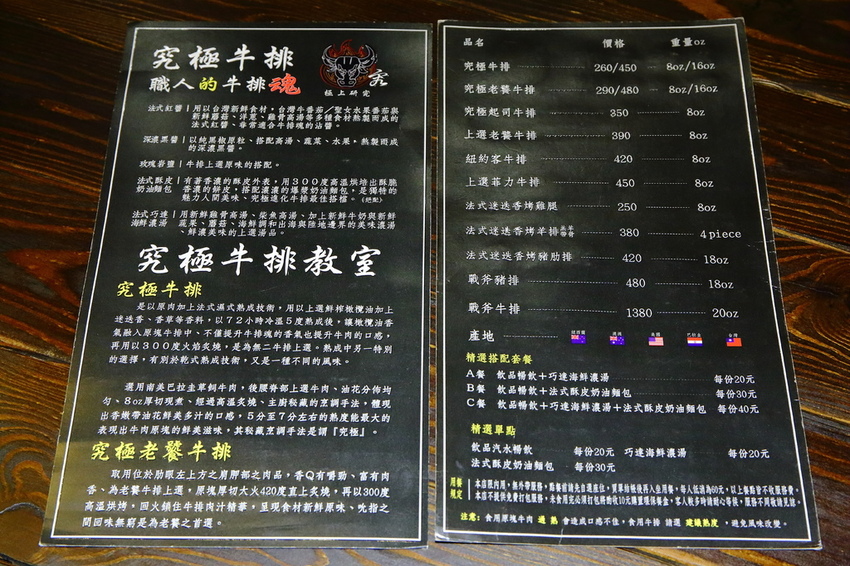 究極牛排
職人的牛排魂
極上研究
法式紅醬|用以台灣新鮮食材,台灣牛番茄/聖女水果番茄與
新鮮蘑菇、洋蔥、雞骨高湯等多種食材熬製而成的
法式紅醬、非常適合牛排塊的沾醬。
深濃黑醬|以純黑椒原粒、搭配高湯、蔬菜、水果,熬製而成
的深濃黑醬。
玫瑰岩鹽|牛排上選原味的搭配。
法式酥皮|有著香濃的酥皮外表,用300度高溫烘焙出酥脆
奶油麵包 香濃的餅皮,搭配濃濃的爆漿奶油麵包,是獨特的
魅力人間美味、究極進化牛排最佳搭檔。(絕配)
法式巧達|用新鮮雞骨高湯、柴魚高湯、加上新鮮牛奶與新鮮
海鮮濃湯 蔬果、蘑菇、海鮮調和出海與陸地邊界的美味濃湯
、鮮濃美味的上選湯品。
究極牛排教室
究極牛排
是以原肉加上法式濕式熟成技術,用以上選鮮榨橄欖油加上
迷迭香、香草等香料,以72小時冷溫5度熟成後,讓橄欖油香
氣融入原塊牛排中、不僅提升牛排塊的香氣也提升牛肉的口感,
再用以300度火焰炙燒,是為無二牛排上選。熟成中另一特別
的選擇,有別於乾式熟成技術,又是一種不同的風味。
選用南美巴拉圭草飼牛肉,後腰脊部上選牛肉、油花分佈均
勻、8oz厚切現煮、經過高溫炙燒、主廚秘藏的烹調手法,體現
出香嫩帶油花鮮美多汁的口感,5分至7分左右的熟度能最大的
表現出牛肉原塊的鮮美滋味,其秘藏烹調手法是謂『究極』。
究極老饕牛排
取用位於肋眼左上方之肩胛部之肉品,香Q有嚼勁、富有肉
香、為老饕牛排上選,原塊厚切大火420度直上炙燒,再以300度
高溫烘烤,回火鎖住牛排肉汁精華,呈現食材新鮮原味、吮指之
間回味無窮是為老饕之首選。
品名 價格 重量oz
究極牛排 260/450 8oz/16oz
究極老饕牛排 290/480 8oz/16oz
究極起司牛排 350 8oz
上選老饕牛排 390 8oz
紐約客牛排 420 8oz
上選菲力牛排 450 8oz
法式迷迭香烤雞腿 250 8oz
法式迷迭香烤羊排 380 4piece
法式迷迭香烤豬肋排 420 18oz
戰斧豬排 480 18oz
戰斧牛排 1380 20oz
產地 紐西蘭 澳洲 美國 巴拉圭 台灣
精選搭配套餐
A餐 飲品暢飲+巧達海鮮濃湯 每份20元
B餐 飲品暢飲+法式酥皮奶油麵包 每份30元
C餐 飲品暢飲+巧達海鮮濃湯+法式酥皮奶油麵包 每份40元
精選單點
飲品汽水暢飲 每份20元 巧達海鮮濃湯 每份20元
法式酥皮奶油麵包 每份30元
用餐規定
注意:食用原塊牛肉 過 熟 會造成口感不佳,食用牛排 請選 建議熟度,避免風味改變。